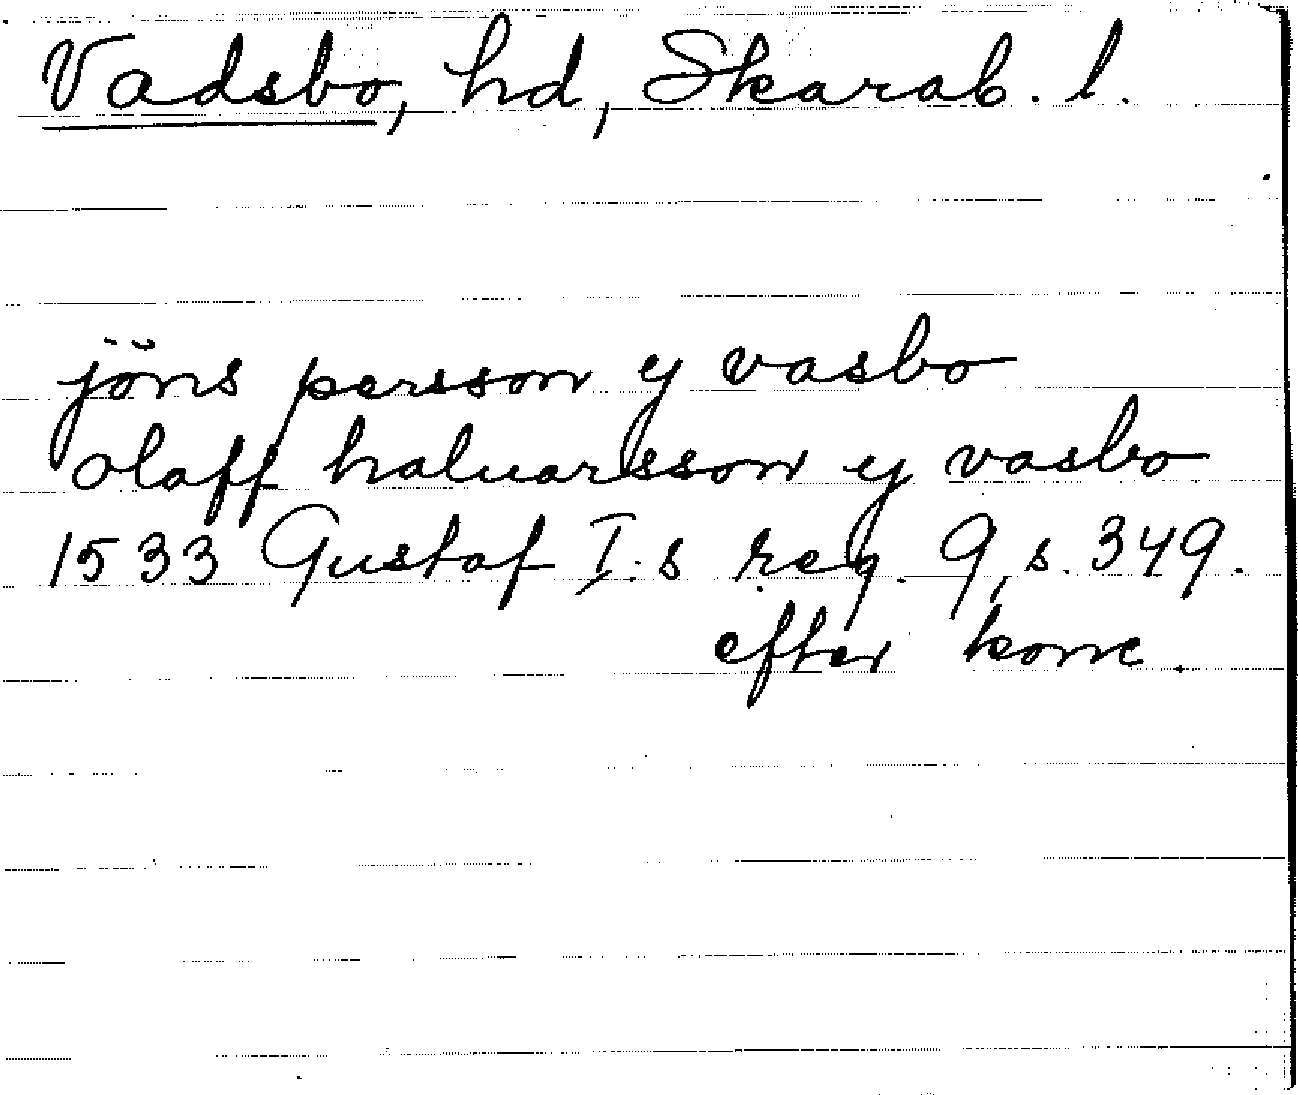 Vadsbo, hd, Skarab. l.
jöns persson y vasbo
olaff haluarsson y vasbo
1533 Gustaf I:s reg. 9, s. 349.
efter konc.